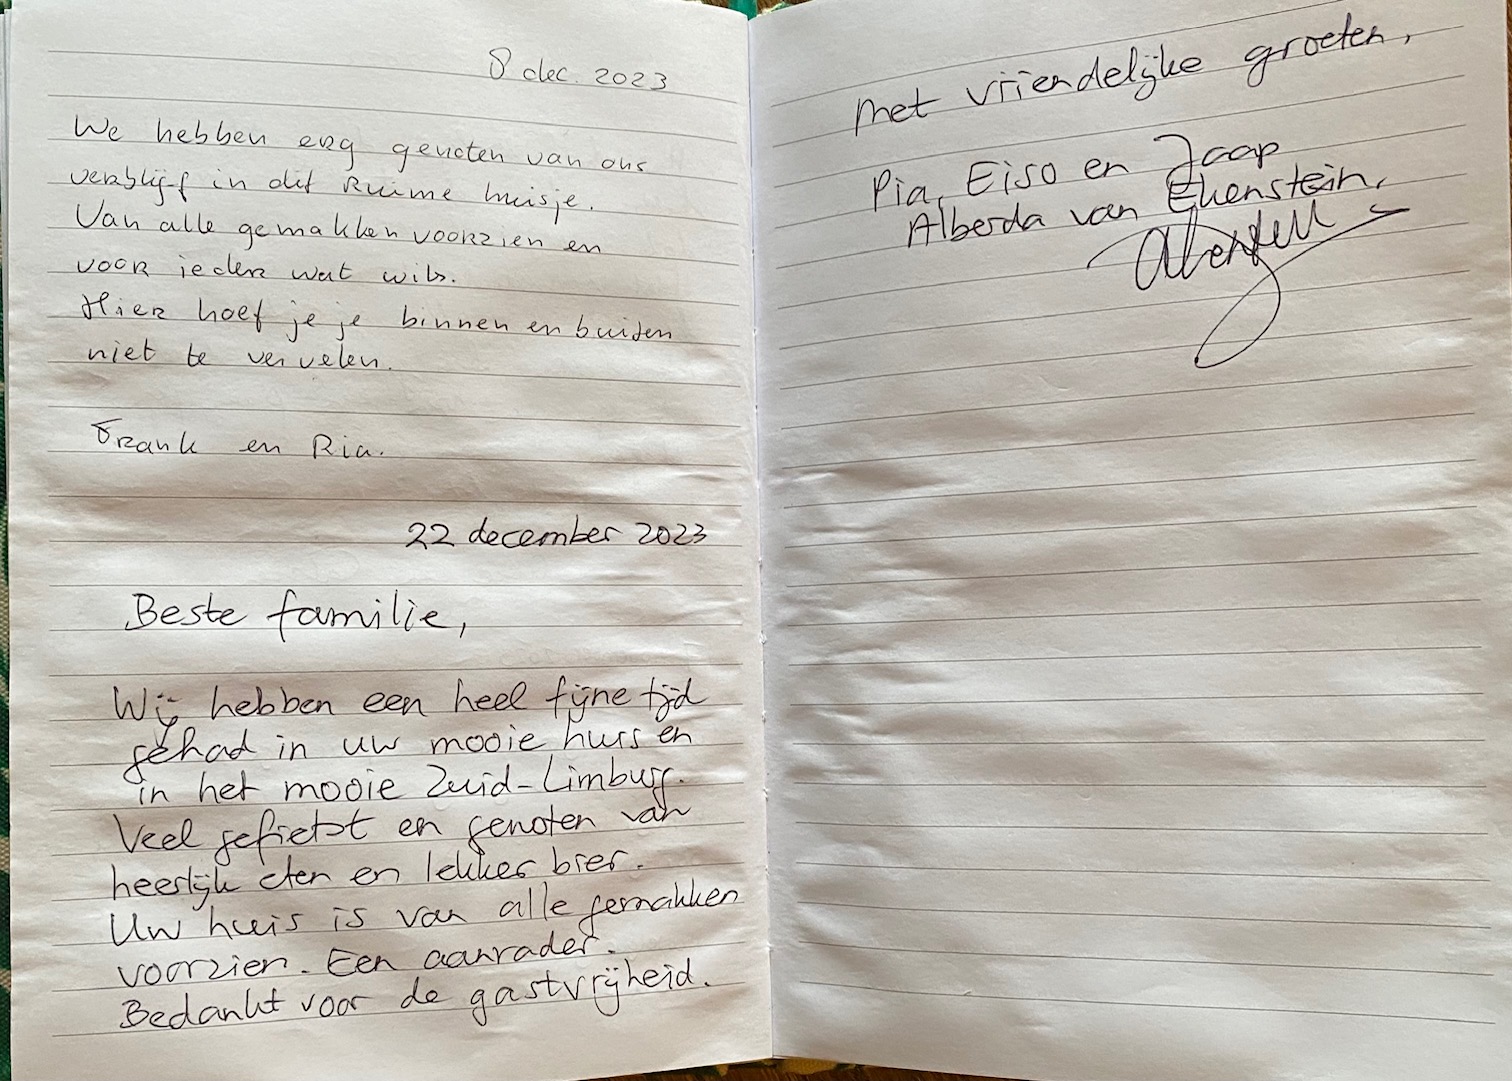 8 dec. 2023
We hebben erg genoten van ons
verblijf in dit Ruime huisje.
Van alle gemakken voorzien en
voor ieder wat wils.
Hier hoef je je binnen en buiten
niet te vervelen.
Frank en Ria.
22 december 2023
Beste familie,
Wij hebben een heel fijne tijd
gehad in uw mooie huis en
in het mooie Zuid-Limburg.
Veel gefietst en genoten van
heerlijk eten en lekker bier.
Uw huis is van alle gemakken
voorzien. Een aanrader.
Bedankt voor de gastvrijheid.
Met vriendelijke groeten,
Pia, Eiso en Jaap
Alberda van Ekenstein,